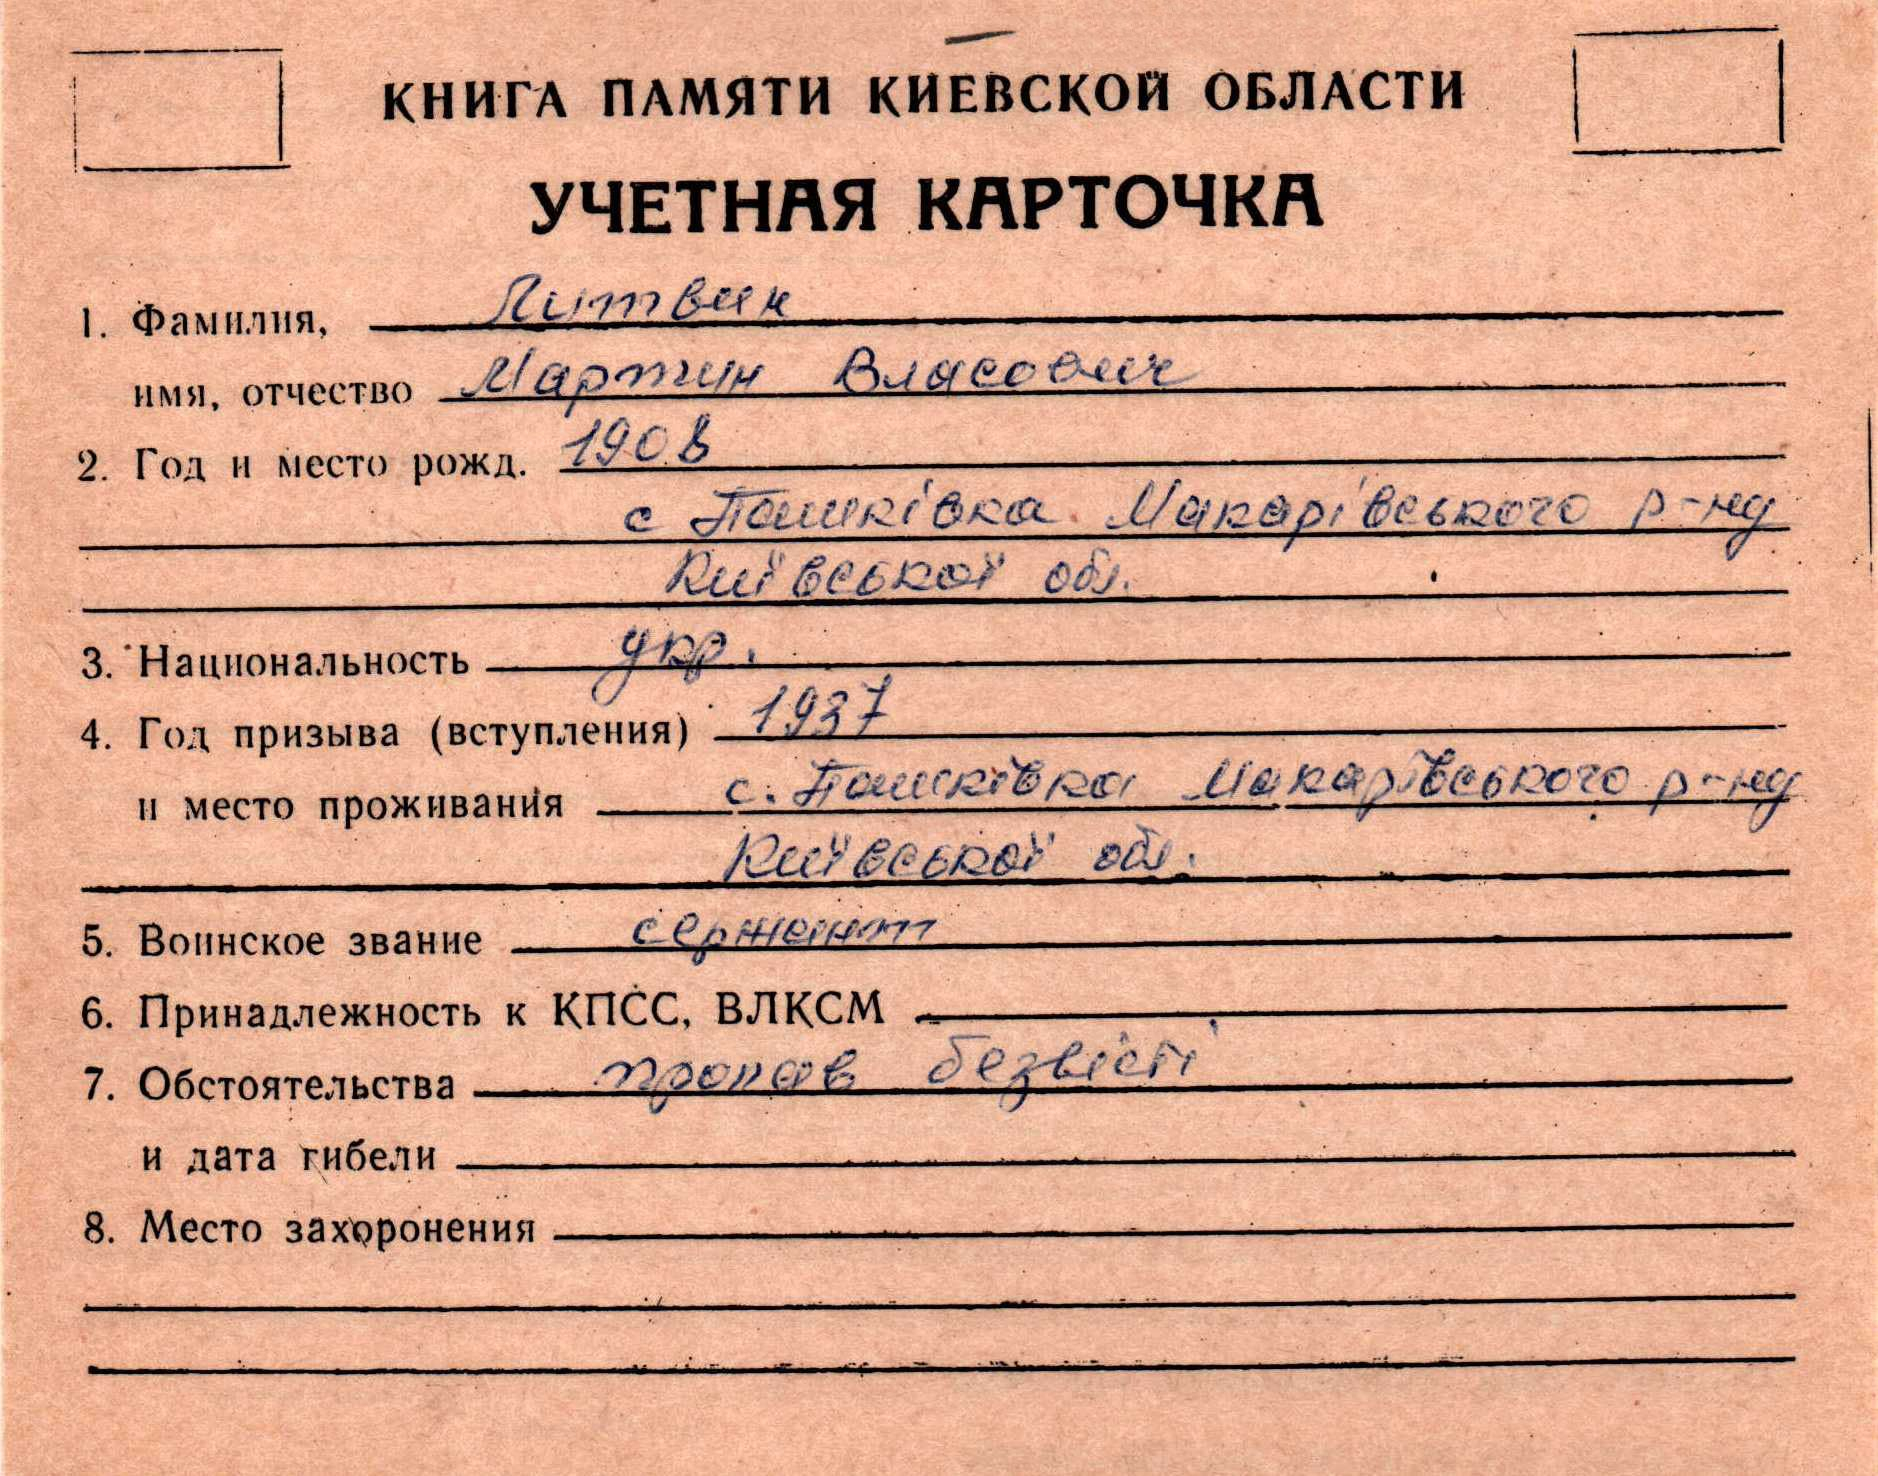 КНИГА ПАМЯТИ КИЕВСКОЙ ОБЛАСТИ
УЧЕТНАЯ КАРТОЧКА
1. Фамилия, Литвин
имя, отчество Мартин Власович
2. Год и место рожд. 1908
с Пашківка Макарівського р-ну
Київської обл.
3. Национальность укр.
4. Год призыва (вступления) 1937
и место проживания с. Пашківка Макарівського р-ну
Київської обл.
5. Воинское звание сержант
6. Принадлежность к КПСС, ВЛКСМ
7. Обстоятельства пропав безвісті
и дата гибели
8. Место захоронения